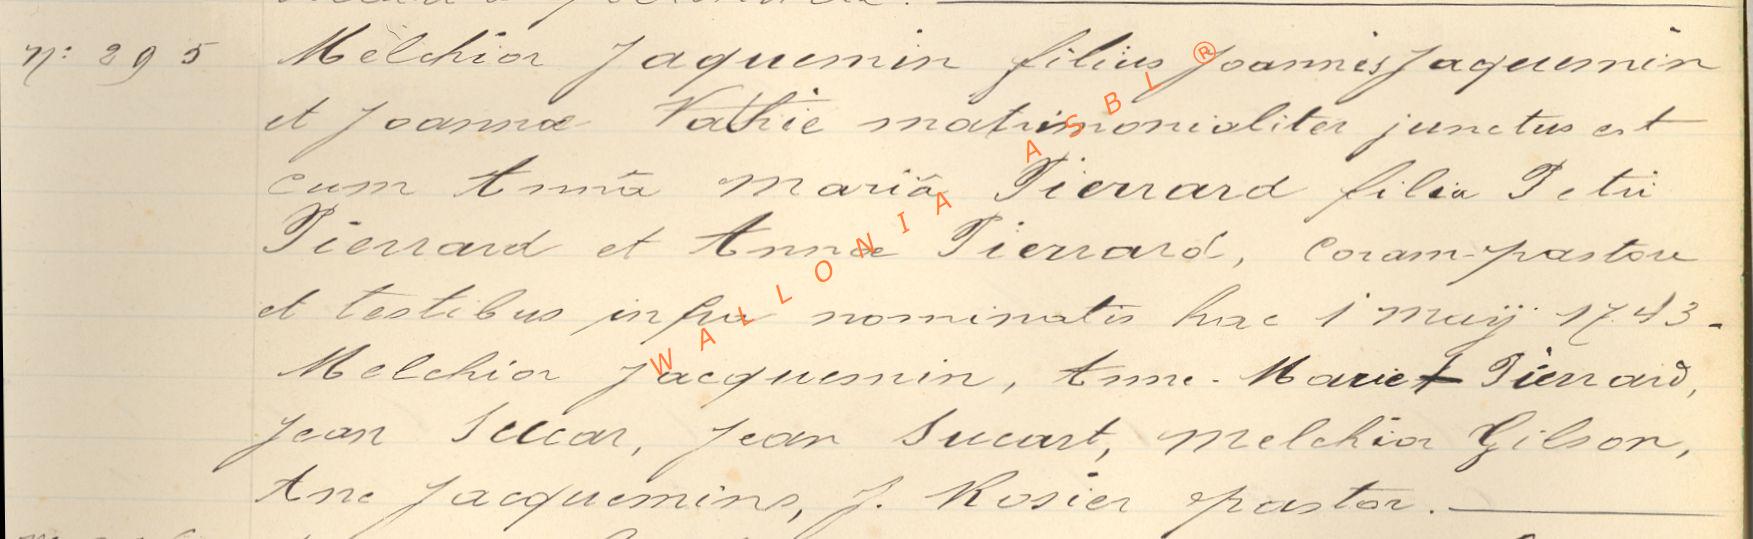 n: 295 Melchior Jaquemin filius Joannis Jaquemin
et Joannæ Vathie matrimonialiter junctus est
cum Annâ Mariâ Pierrard filia Petri
Pierrard et Annæ Pierrard, coram pastore
et testibus infra nominatis hac 1 maij 1743.
Melchior Jacquemin, Anne-Marie + Pierrard,
Jean Sucar, Jean Sucart, Melchior Gilson,
Ane Jacquemins, J. Rosier pastor.
WALLONIA ASBL ®